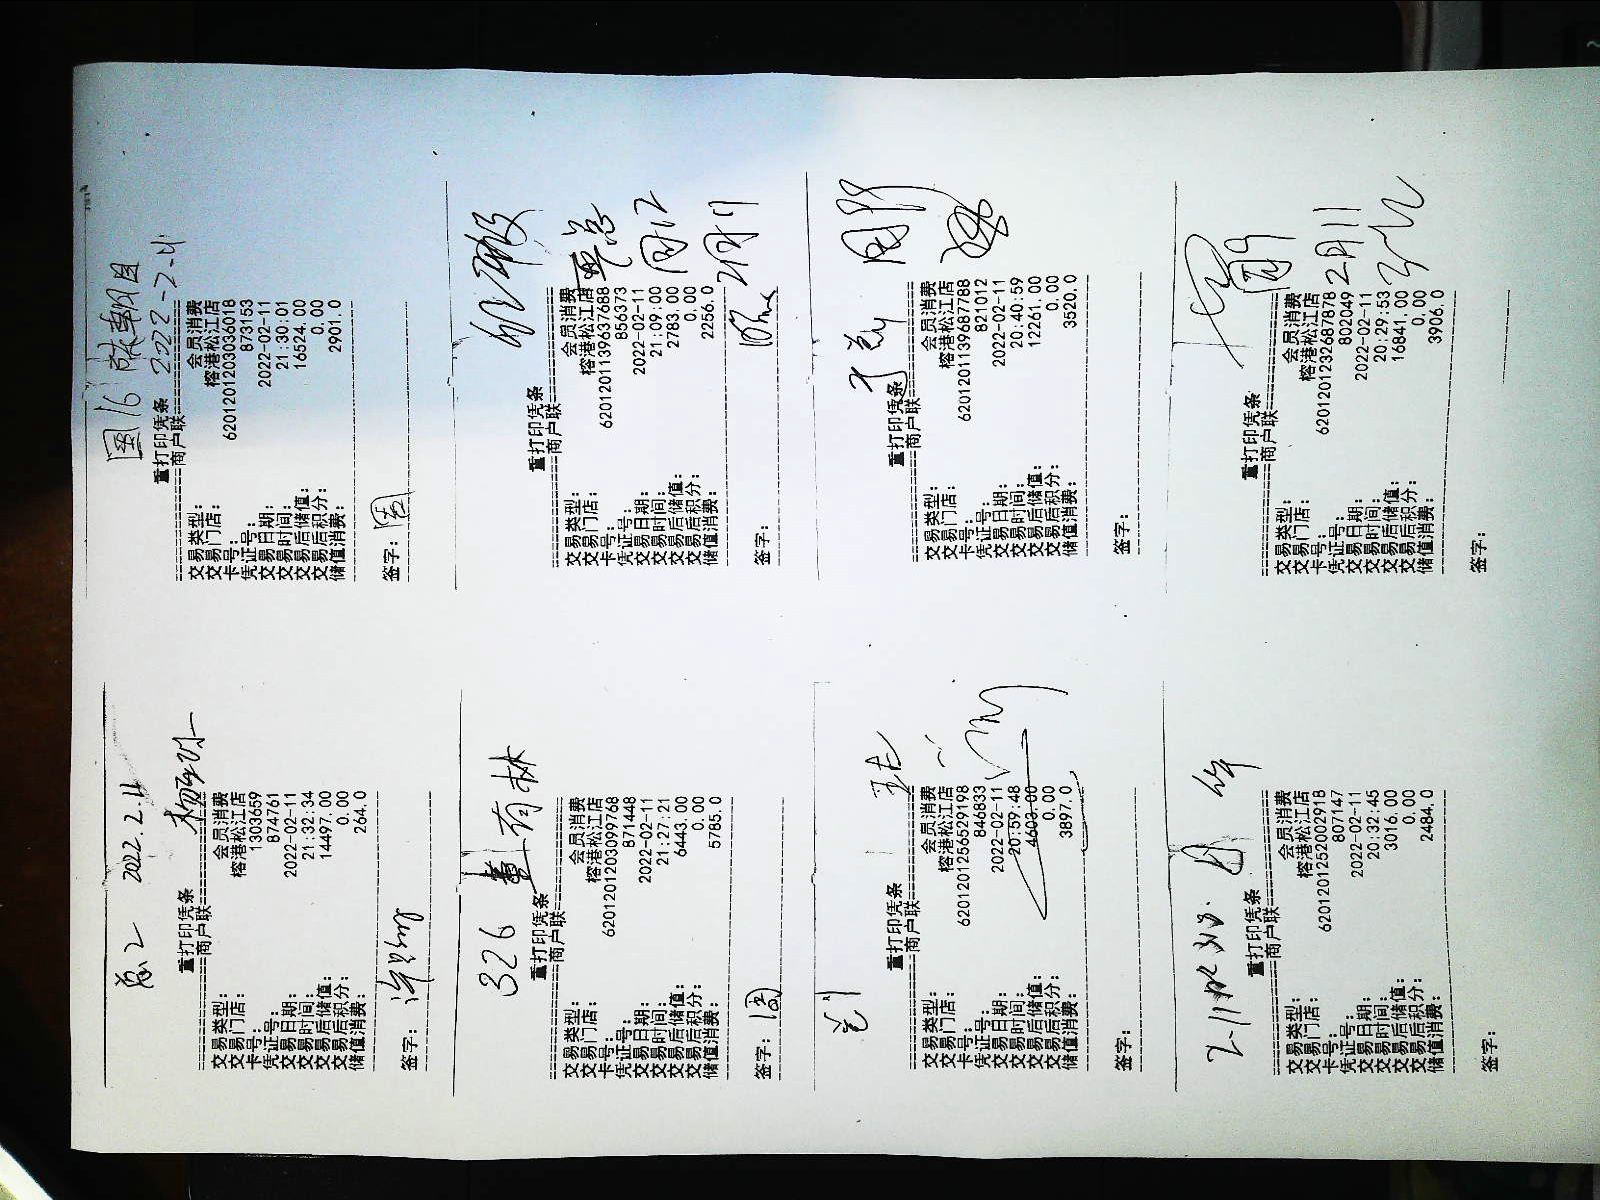 2022.2.11
重打印凭条
商户联
交易类型： 会员消费
交易门店： 榕港松江店
卡号： 1303659
凭证号： 874761
交易日期： 2022-02-11
交易时间： 21:32:34
交易后储值： 14497.00
交易后积分： 0.00
储值消费： 264.0
签字：
国16
2022-2-11
重打印凭条
商户联
交易类型： 会员消费
交易门店： 榕港松江店
卡号： 6201201203036018
凭证号： 873153
交易日期： 2022-02-11
交易时间： 21:30:01
交易后储值： 16524.00
交易后积分： 0.00
储值消费： 2901.0
签字：
326 董有林
重打印凭条
商户联
交易类型： 会员消费
交易门店： 榕港松江店
卡号： 6201201203099768
凭证号： 871448
交易日期： 2022-02-11
交易时间： 21:27:21
交易后储值： 6443.00
交易后积分： 0.00
储值消费： 5785.0
签字：
重打印凭条
商户联
交易类型： 会员消费
交易门店： 榕港松江店
卡号： 6201201139637688
凭证号： 856373
交易日期： 2022-02-11
交易时间： 21:09:00
交易后储值： 2783.00
交易后积分： 0.00
储值消费： 2256.0
签字：
重打印凭条
商户联
交易类型： 会员消费
交易门店： 榕港松江店
卡号： 6201201256529198
凭证号： 846833
交易日期： 2022-02-11
交易时间： 20:59:48
交易后储值： 4603.00
交易后积分： 0.00
储值消费： 3897.0
签字：
重打印凭条
商户联
交易类型： 会员消费
交易门店： 榕港松江店
卡号： 6201201139687788
凭证号： 821012
交易日期： 2022-02-11
交易时间： 20:40:59
交易后储值： 12261.00
交易后积分： 0.00
储值消费： 3520.0
签字：
2-11
重打印凭条
商户联
交易类型： 会员消费
交易门店： 榕港松江店
卡号： 6201201252002918
凭证号： 807147
交易日期： 2022-02-11
交易时间： 20:32:45
交易后储值： 3016.00
交易后积分： 0.00
储值消费： 2484.0
签字：
重打印凭条
商户联
交易类型： 会员消费
交易门店： 榕港松江店
卡号： 6201201232687878
凭证号： 802049
交易日期： 2022-02-11
交易时间： 20:29:53
交易后储值： 16841.00
交易后积分： 0.00
储值消费： 3906.0
2月11
签字：